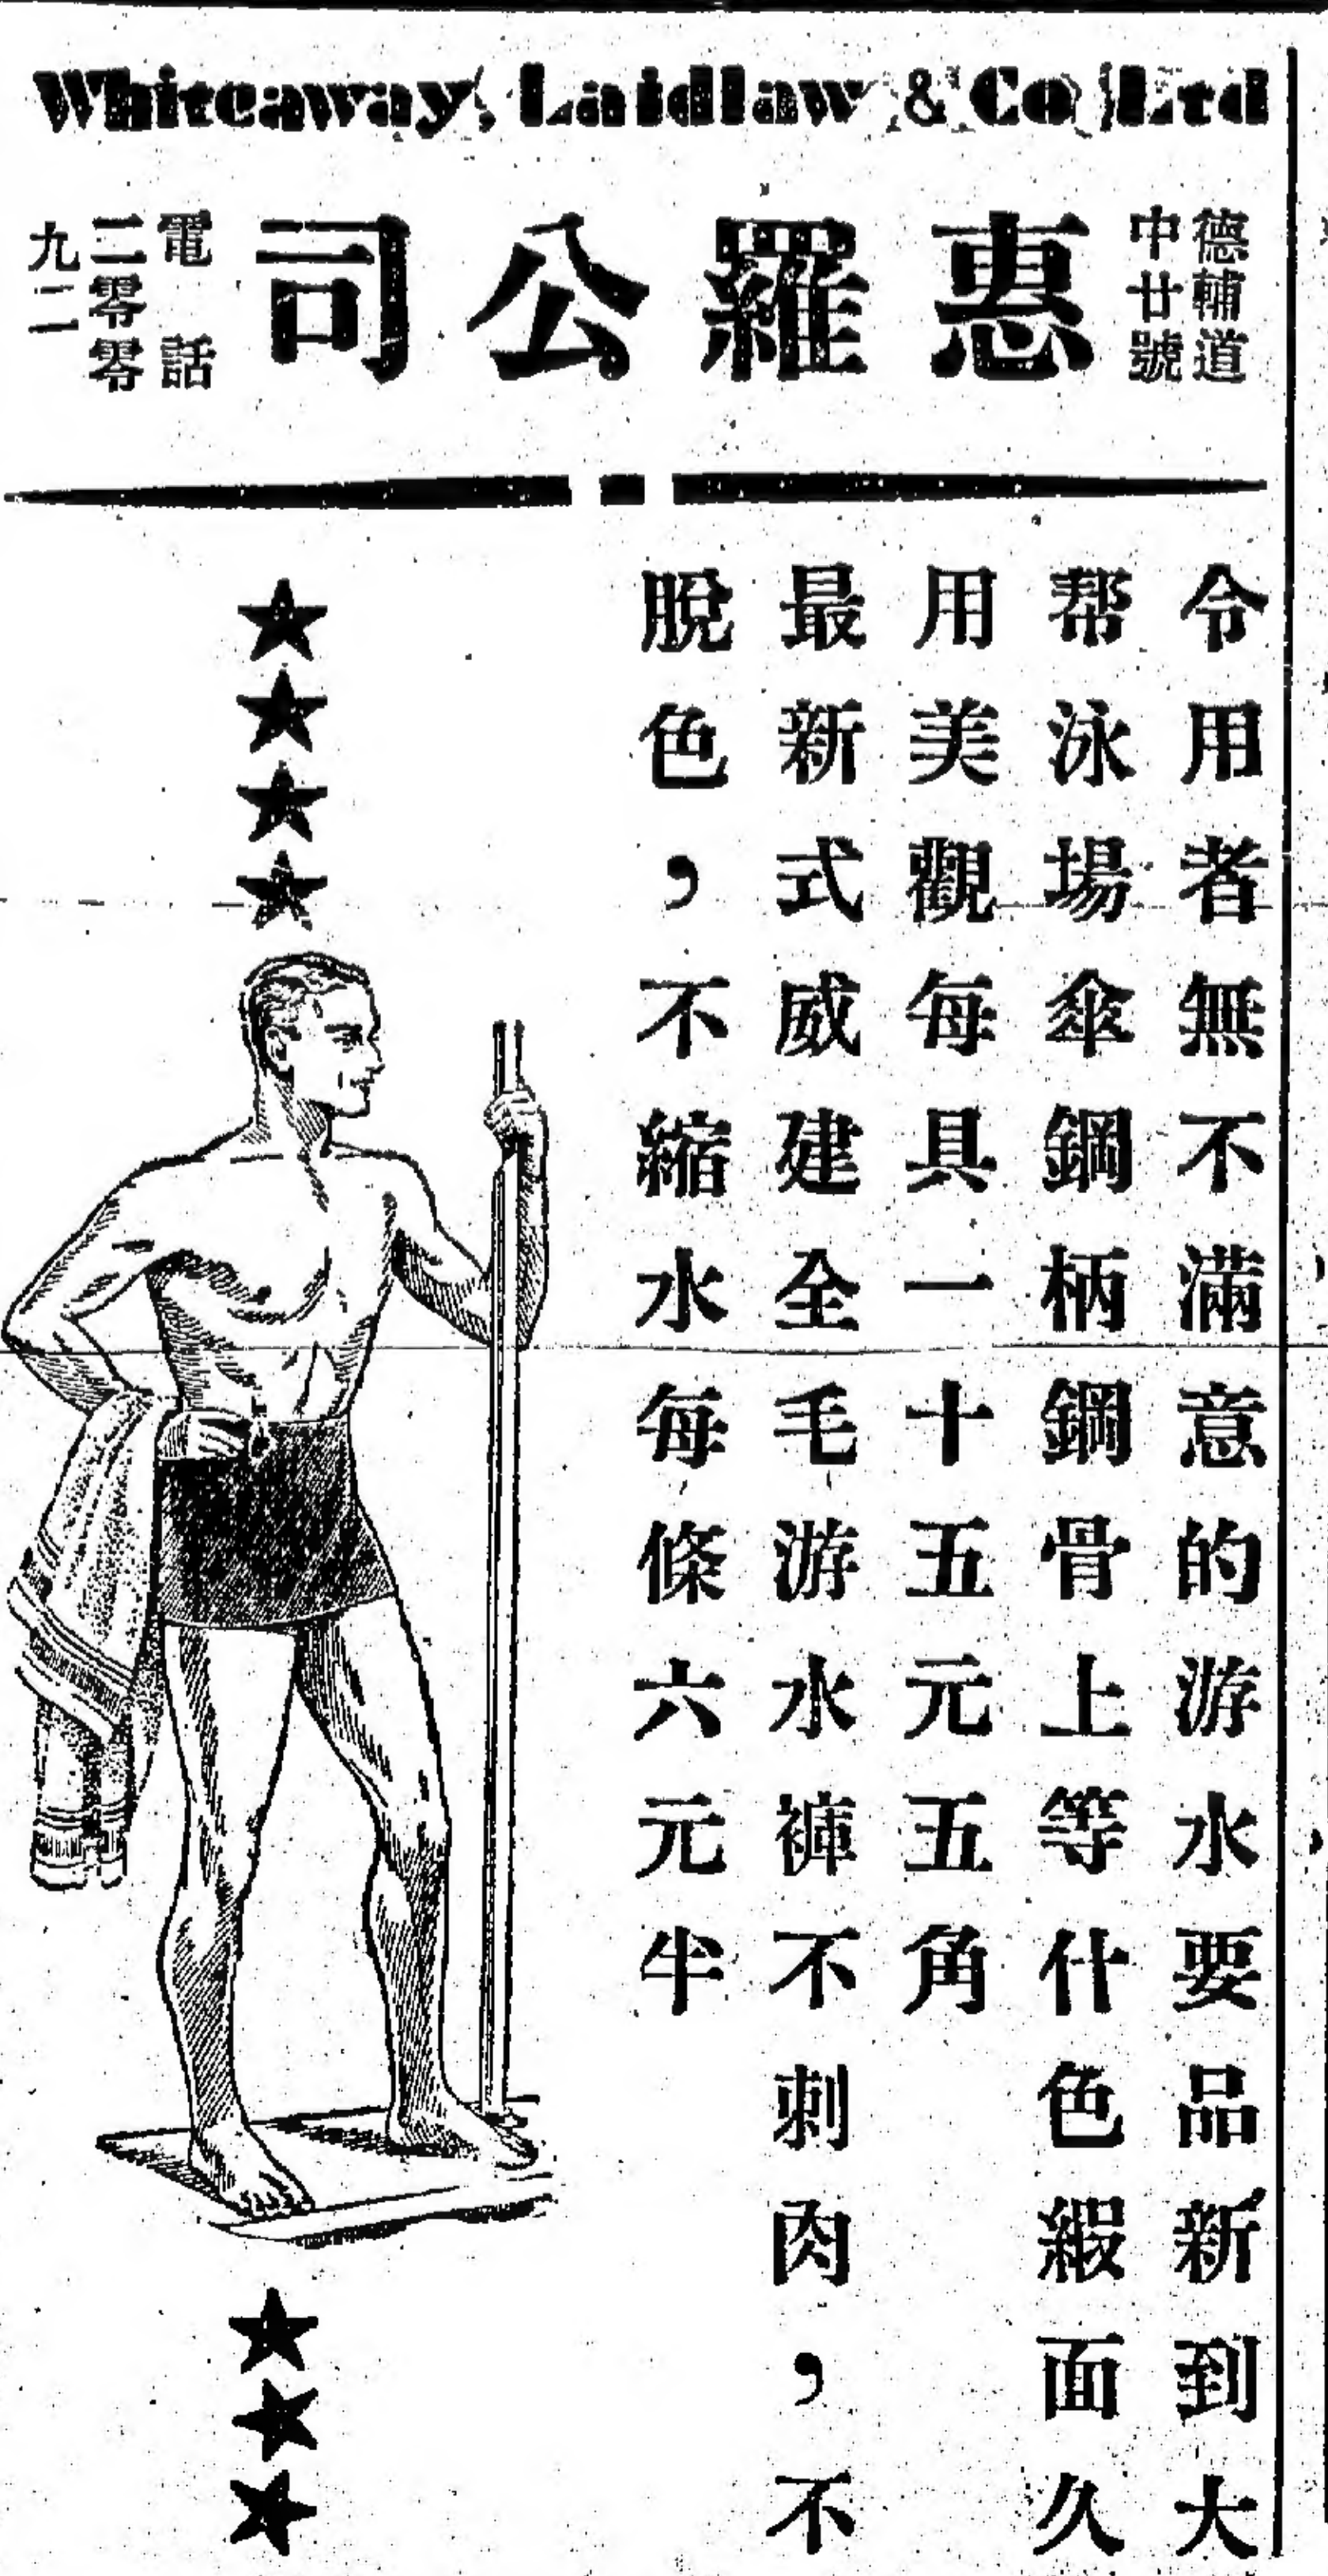 Whiteaway, Laidlaw & Co Ltd
德輔道
中廿號
惠羅公司
電話
二零零
九二
令用者無不滿意的游水要品新到大
帮泳場傘鋼柄鋼骨上等什色緞面久
用美觀每具一十五元五角
最新式威建全毛游水褲不刺肉，不
脫色，不縮水每條六元半